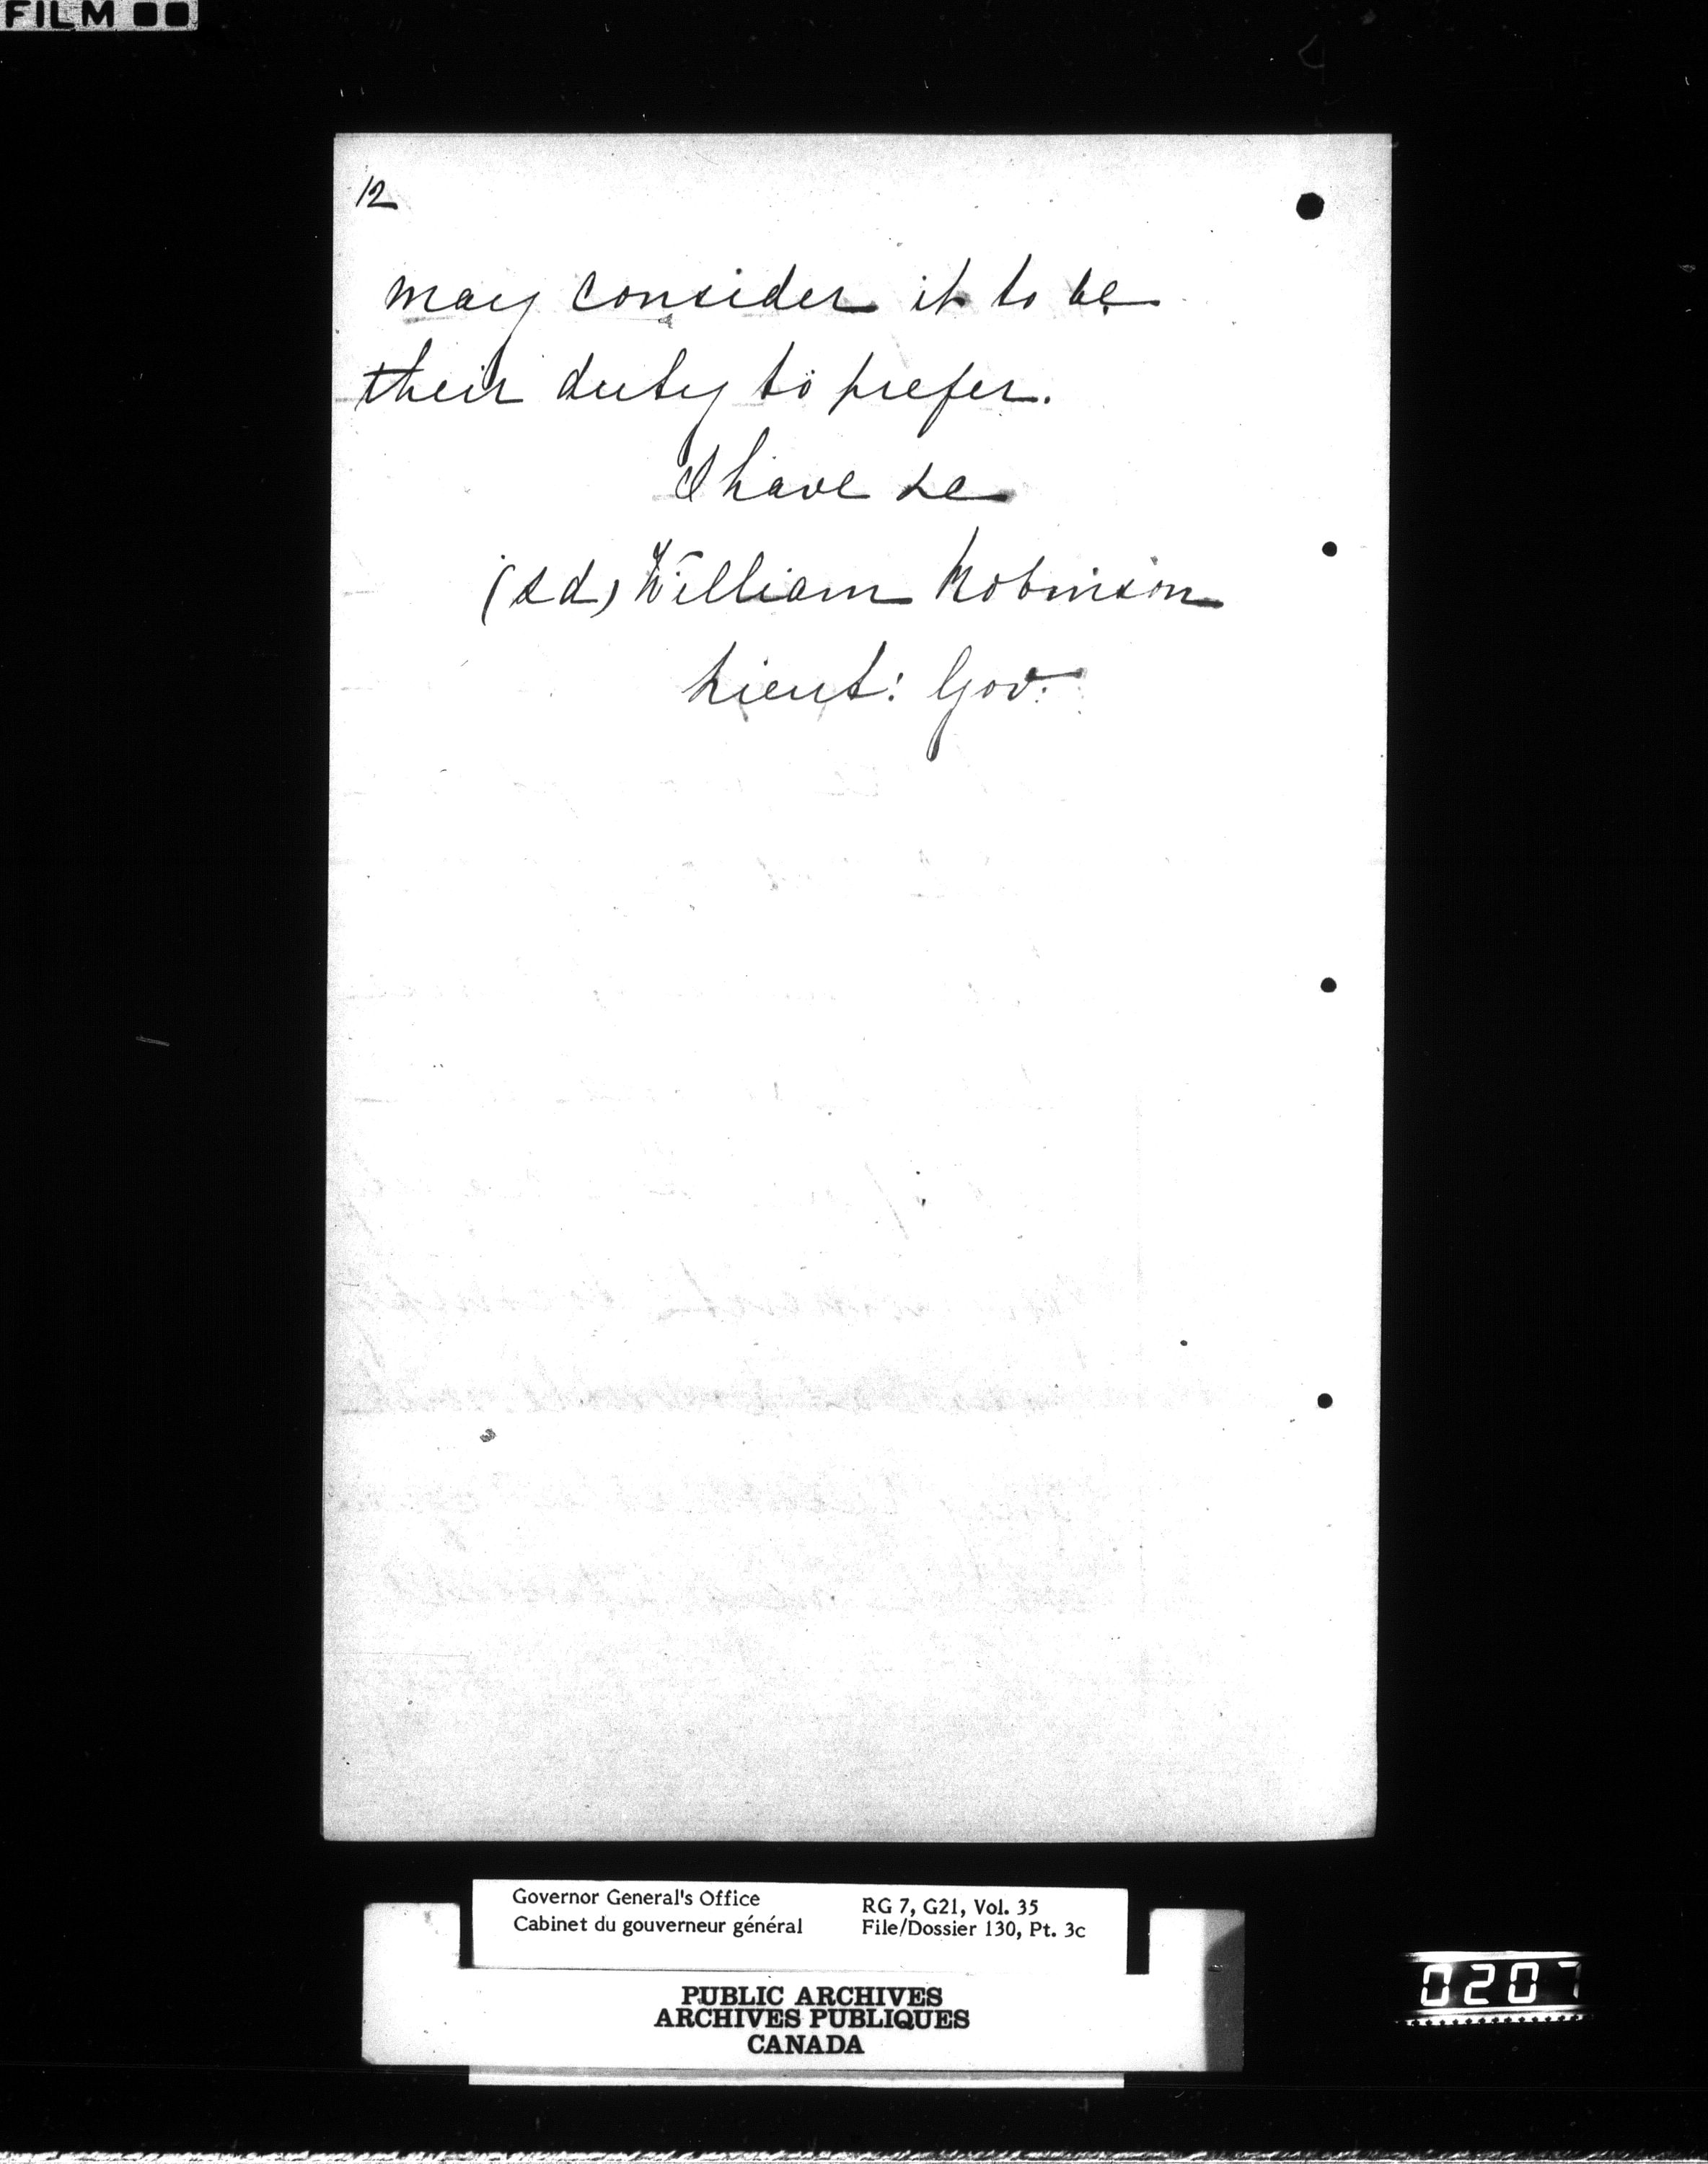 FILM
12
may consider it to be
their duty to prefer.
I have &c
(sd) William Robinson
Lieut: Gov.
Governor General's Office
Cabinet du gouverneur général
RG 7, G21, Vol. 35
File/Dossier 130, Pt. 3c
PUBLIC ARCHIVES
ARCHIVES PUBLIQUES
CANADA
0207